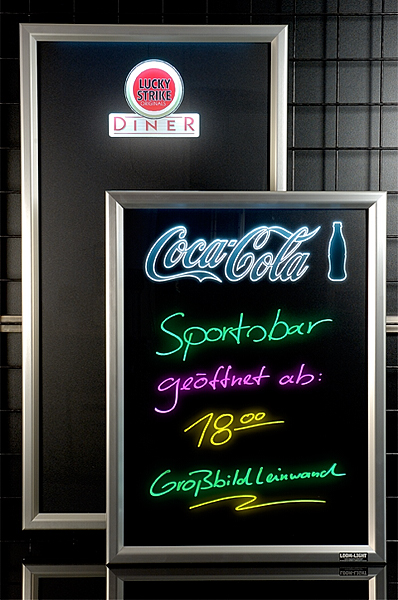 LUCKY
STRIKE
ORIGINALS
DINER
Coca-Cola
Sportsbar
geöffnet ab:
18⁰⁰
Großbildleinwand
LOOK-LIGHT